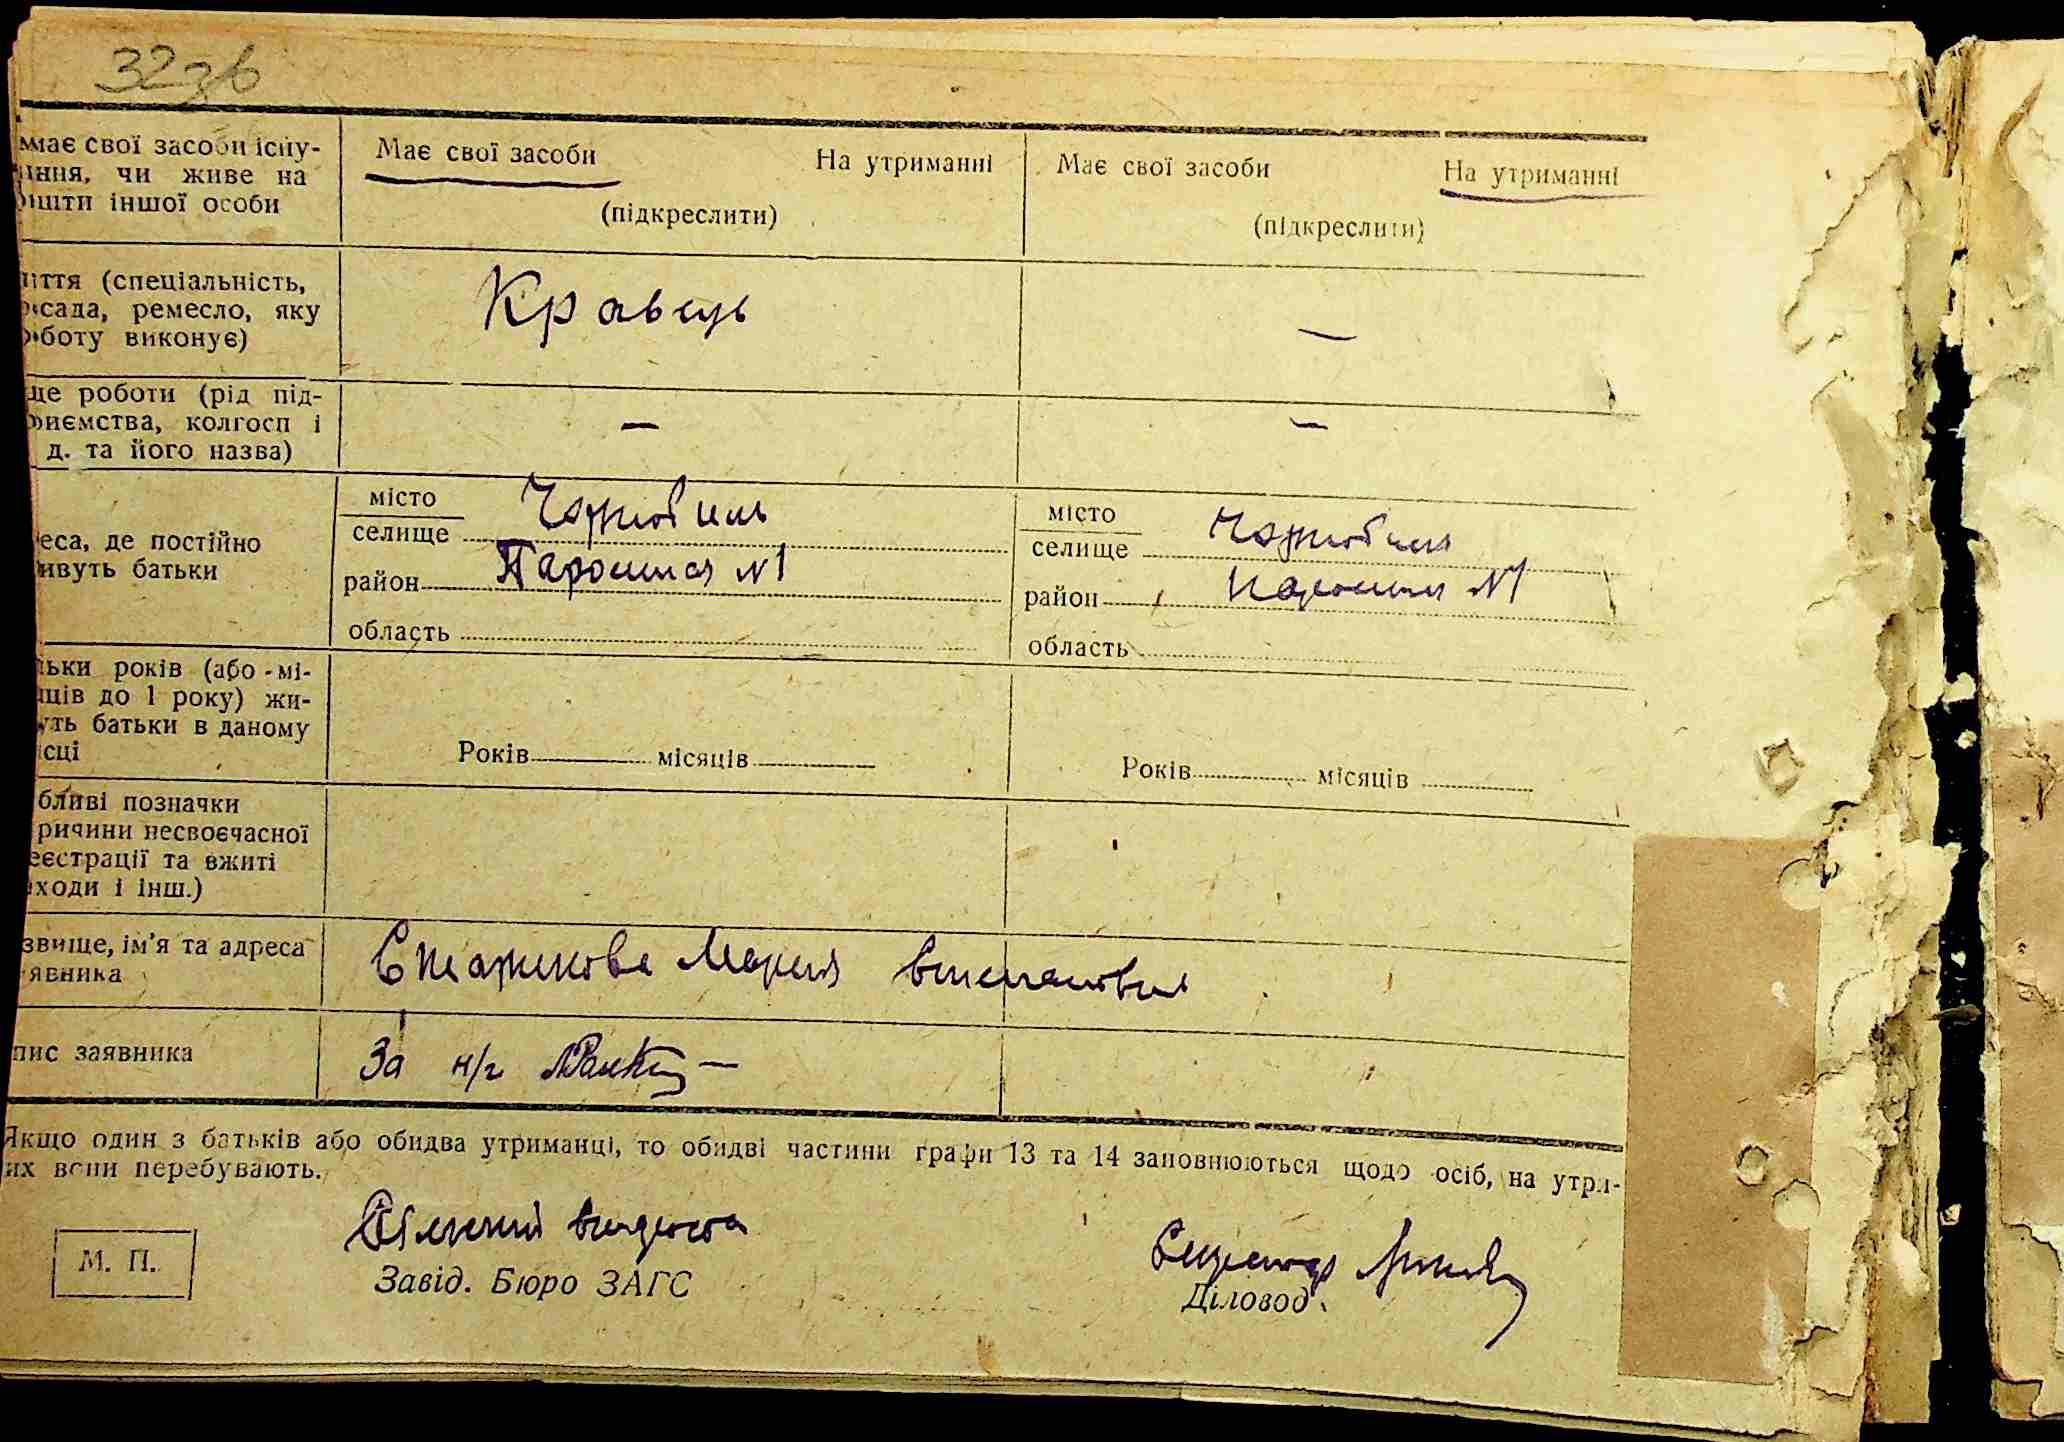 32зв
має свої засоби існу-
ання, чи живе на
ошти іншої особи
Має свої засоби На утриманні
(підкреслити)
Має свої засоби На утриманні
(підкреслити)
иття (спеціальність,
осада, ремесло, яку
оботу виконує)
Кравець
—
це роботи (рід під-
приємства, колгосп і
д. та його назва)
—
—
еса, де постійно
ивуть батьки
місто
селище Чорнобиль
район Паромная №1
область
місто
селище Чорнобиль
район Паромная №1
область
льки років (або мі-
яців до 1 року) жи-
уть батьки в даному
ісці
Років місяців
Років місяців
бливі позначки
ричини несвоєчасної
еєстрації та вжиті
аходи і інш.)
звище, ім'я та адреса
явника
Мария
пис заявника
За н/г
Якщо один з батьків або обидва утриманці, то обидві частини графи 13 та 14 заповнюються щодо осіб, на утри-
их вони перебувають.
М. П.
Завід. Бюро ЗАГС
Секретар
Діловод